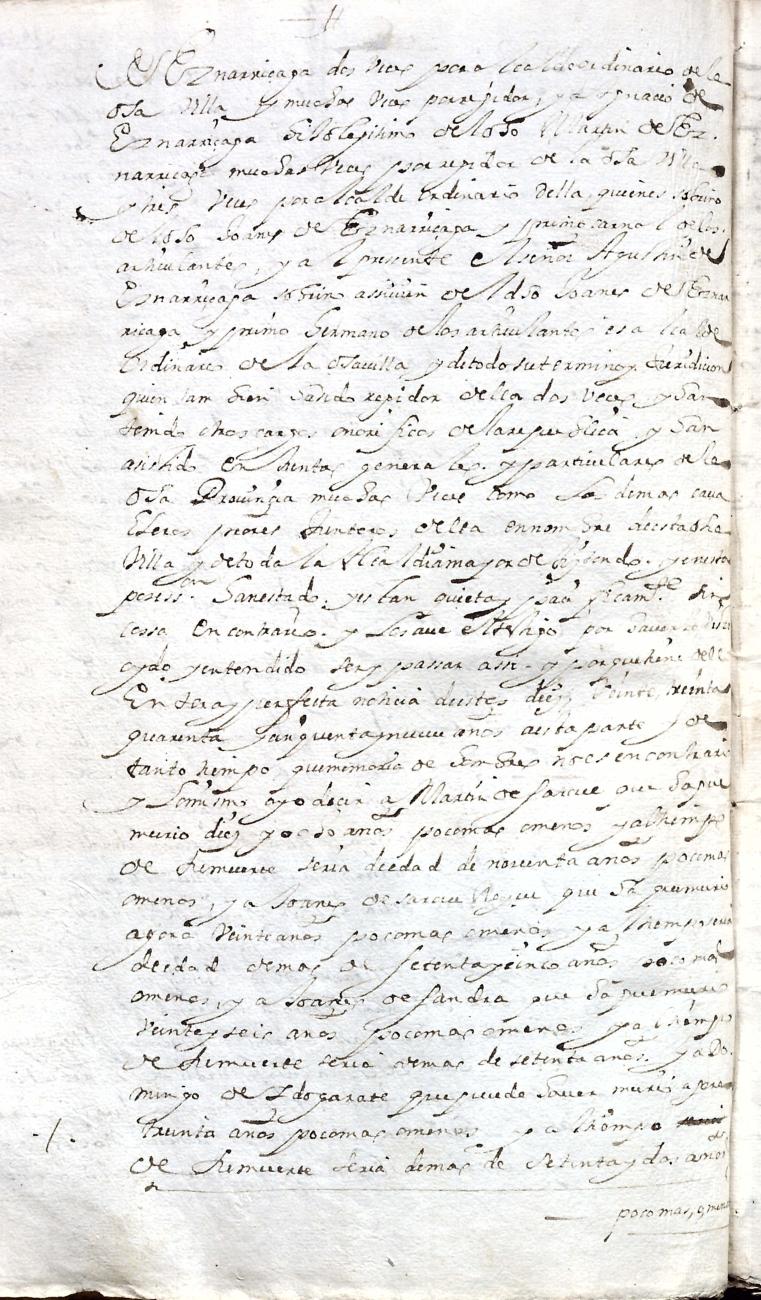 de Eznarriçaga dos veces por alcalde ordinario de la
dha villa y muchas veces por regidor, y a Ygnacio de
Eznarriçaga hijo legitimo de lo dho Martin de Ez-
narriçaga muchas veces por regidor de la dha villa
y tres veces por alcalde ordinario della, quienes
del dho Joanes de Eznarriçaga y primo carnal de los
articulantes, y al presente el señor Agustin de
Eznarriçaga sobrino assi bien del dho Joanes de Eznar
riçaga y primo hermano de los articulantes es alcalde
ordinario de la dha villa y de todo su termino y juridicion
quien tambien ha sido regidor della dos veces y han
tenido otros cargos onorificos de la republica y han
asistido en Juntas generales y particulares de la
dha Provinçia muchas veces como los demas cava
lleros Junteros della en nombre desta dha
villa y de toda la Alcaldia mayor de y en esta
posess.on han estado y estan quieta y pacificam.te sin
cossa en contrario y lo save el testigo por haverlo visto
oydo y entendido ser y passar assi y porque tiene dello
entera y perfecta noticia destos diez, veinte, treinta
quarenta y cinquenta y nueve años a esta parte y de
tanto tiempo que memoria de hombres no es en contrario
y lo mismo oyo decir a Martin de que ha que
murio diez y ocho años poco mas o menos y al tiempo
de su muerte seria de edad de noventa años poco mas
o menos, y a Joanes de que ha que murio
agora veinte años poco mas o menos y al tiempo seria
de edad de mas de setenta y cinco años poco mas
o menos, y a Joanes de que ha que murio
veinte y seis años poco mas o menos y al tiempo
de su muerte seria de mas de setenta años y a Do
mingo de Ydogarate que puede haver murio agora
treinta años poco mas o menos y al tiempo
de su muerte seria de mas de setenta y dos años
poco mas, o menos